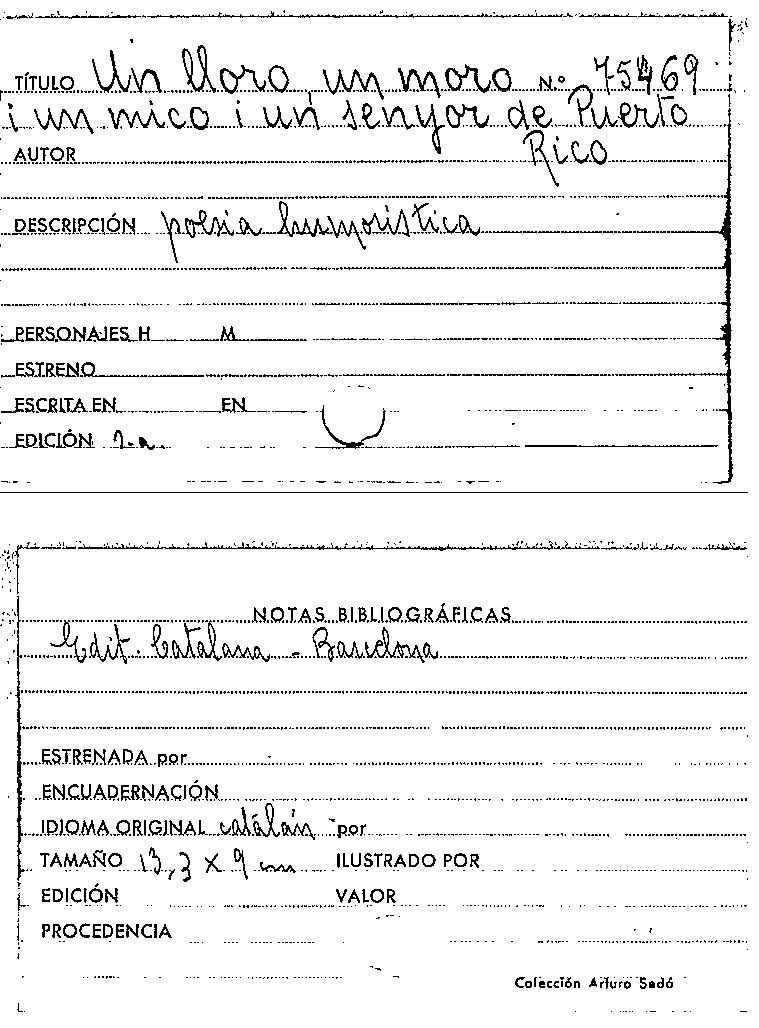 TÍTULO Un lloro, un moro N.º 75469
i un mico i un senyor de Puerto
AUTOR Rico
DESCRIPCIÓN poesia humorística
PERSONAJES H M
ESTRENO
ESCRITA EN EN
EDICIÓN 2.a.
NOTAS BIBLIOGRÁFICAS
Edit. Catalana - Barcelona
ESTRENADA por
ENCUADERNACIÓN
IDIOMA ORIGINAL catalán por
TAMAÑO 13,3 x 9 cm ILUSTRADO POR
EDICIÓN VALOR
PROCEDENCIA
Colección Arturo Sedó